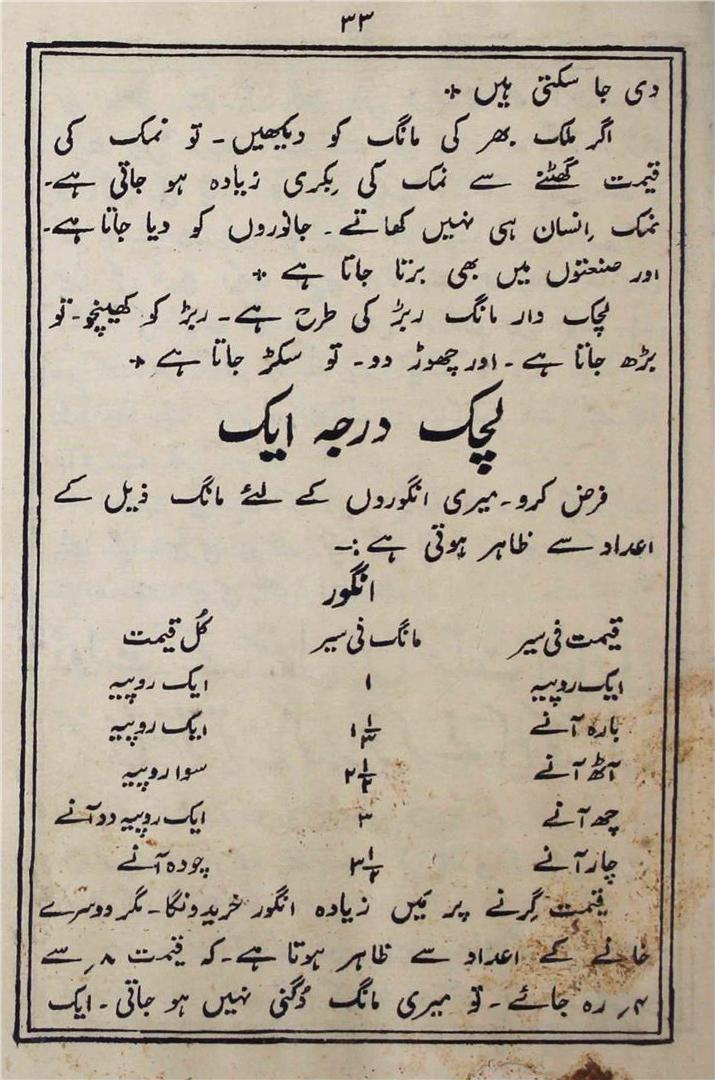 ۳۳
دی جا سکتی ہیں +
اگر ملک بھر کی مانگ کو دیکھیں۔ تو نمک کی
قیمت گھٹنے سے نمک کی بِکری زیادہ ہو جاتی ہے۔
نمک اِنسان ہی نہیں کھاتے۔ جانوروں کو دیا جاتا ہے۔
اور صنعتوں میں بھی برتا جاتا ہے +
لچک دار مانگ ربڑ کی طرح ہے۔ ربڑ کو کھینچو۔ تو
بڑھ جاتا ہے۔ اور چھوڑ دو۔ تو سکڑ جاتا ہے +
لچک درجہ ایک
فرض کرو۔ میری انگوروں کے لئے مانگ ذیل کے
اعداد سے ظاہر ہوتی ہے :۔
انگور
قیمت فی سیر مانگ فی سیر کُل قیمت
ایک روپیہ ۱ ایک روپیہ
بارہ آنے ۱ ۱/۳ ایک روپیہ
آٹھ آنے ۲ ۱/۲ سوا روپیہ
چھ آنے ۳ ایک روپیہ دو آنے
چار آنے ۳ ۱/۲ چودہ آنے
قیمت گِرنے پر مَیں زیادہ انگور خریدونگا۔ مگر دوسرے
خانے کے اعداد سے ظاہر ہوتا ہے۔ کہ قیمت ۸؍ سے
۴؍ رہ جائے۔ تو میری مانگ دُگنی نہیں ہو جاتی۔ ایک